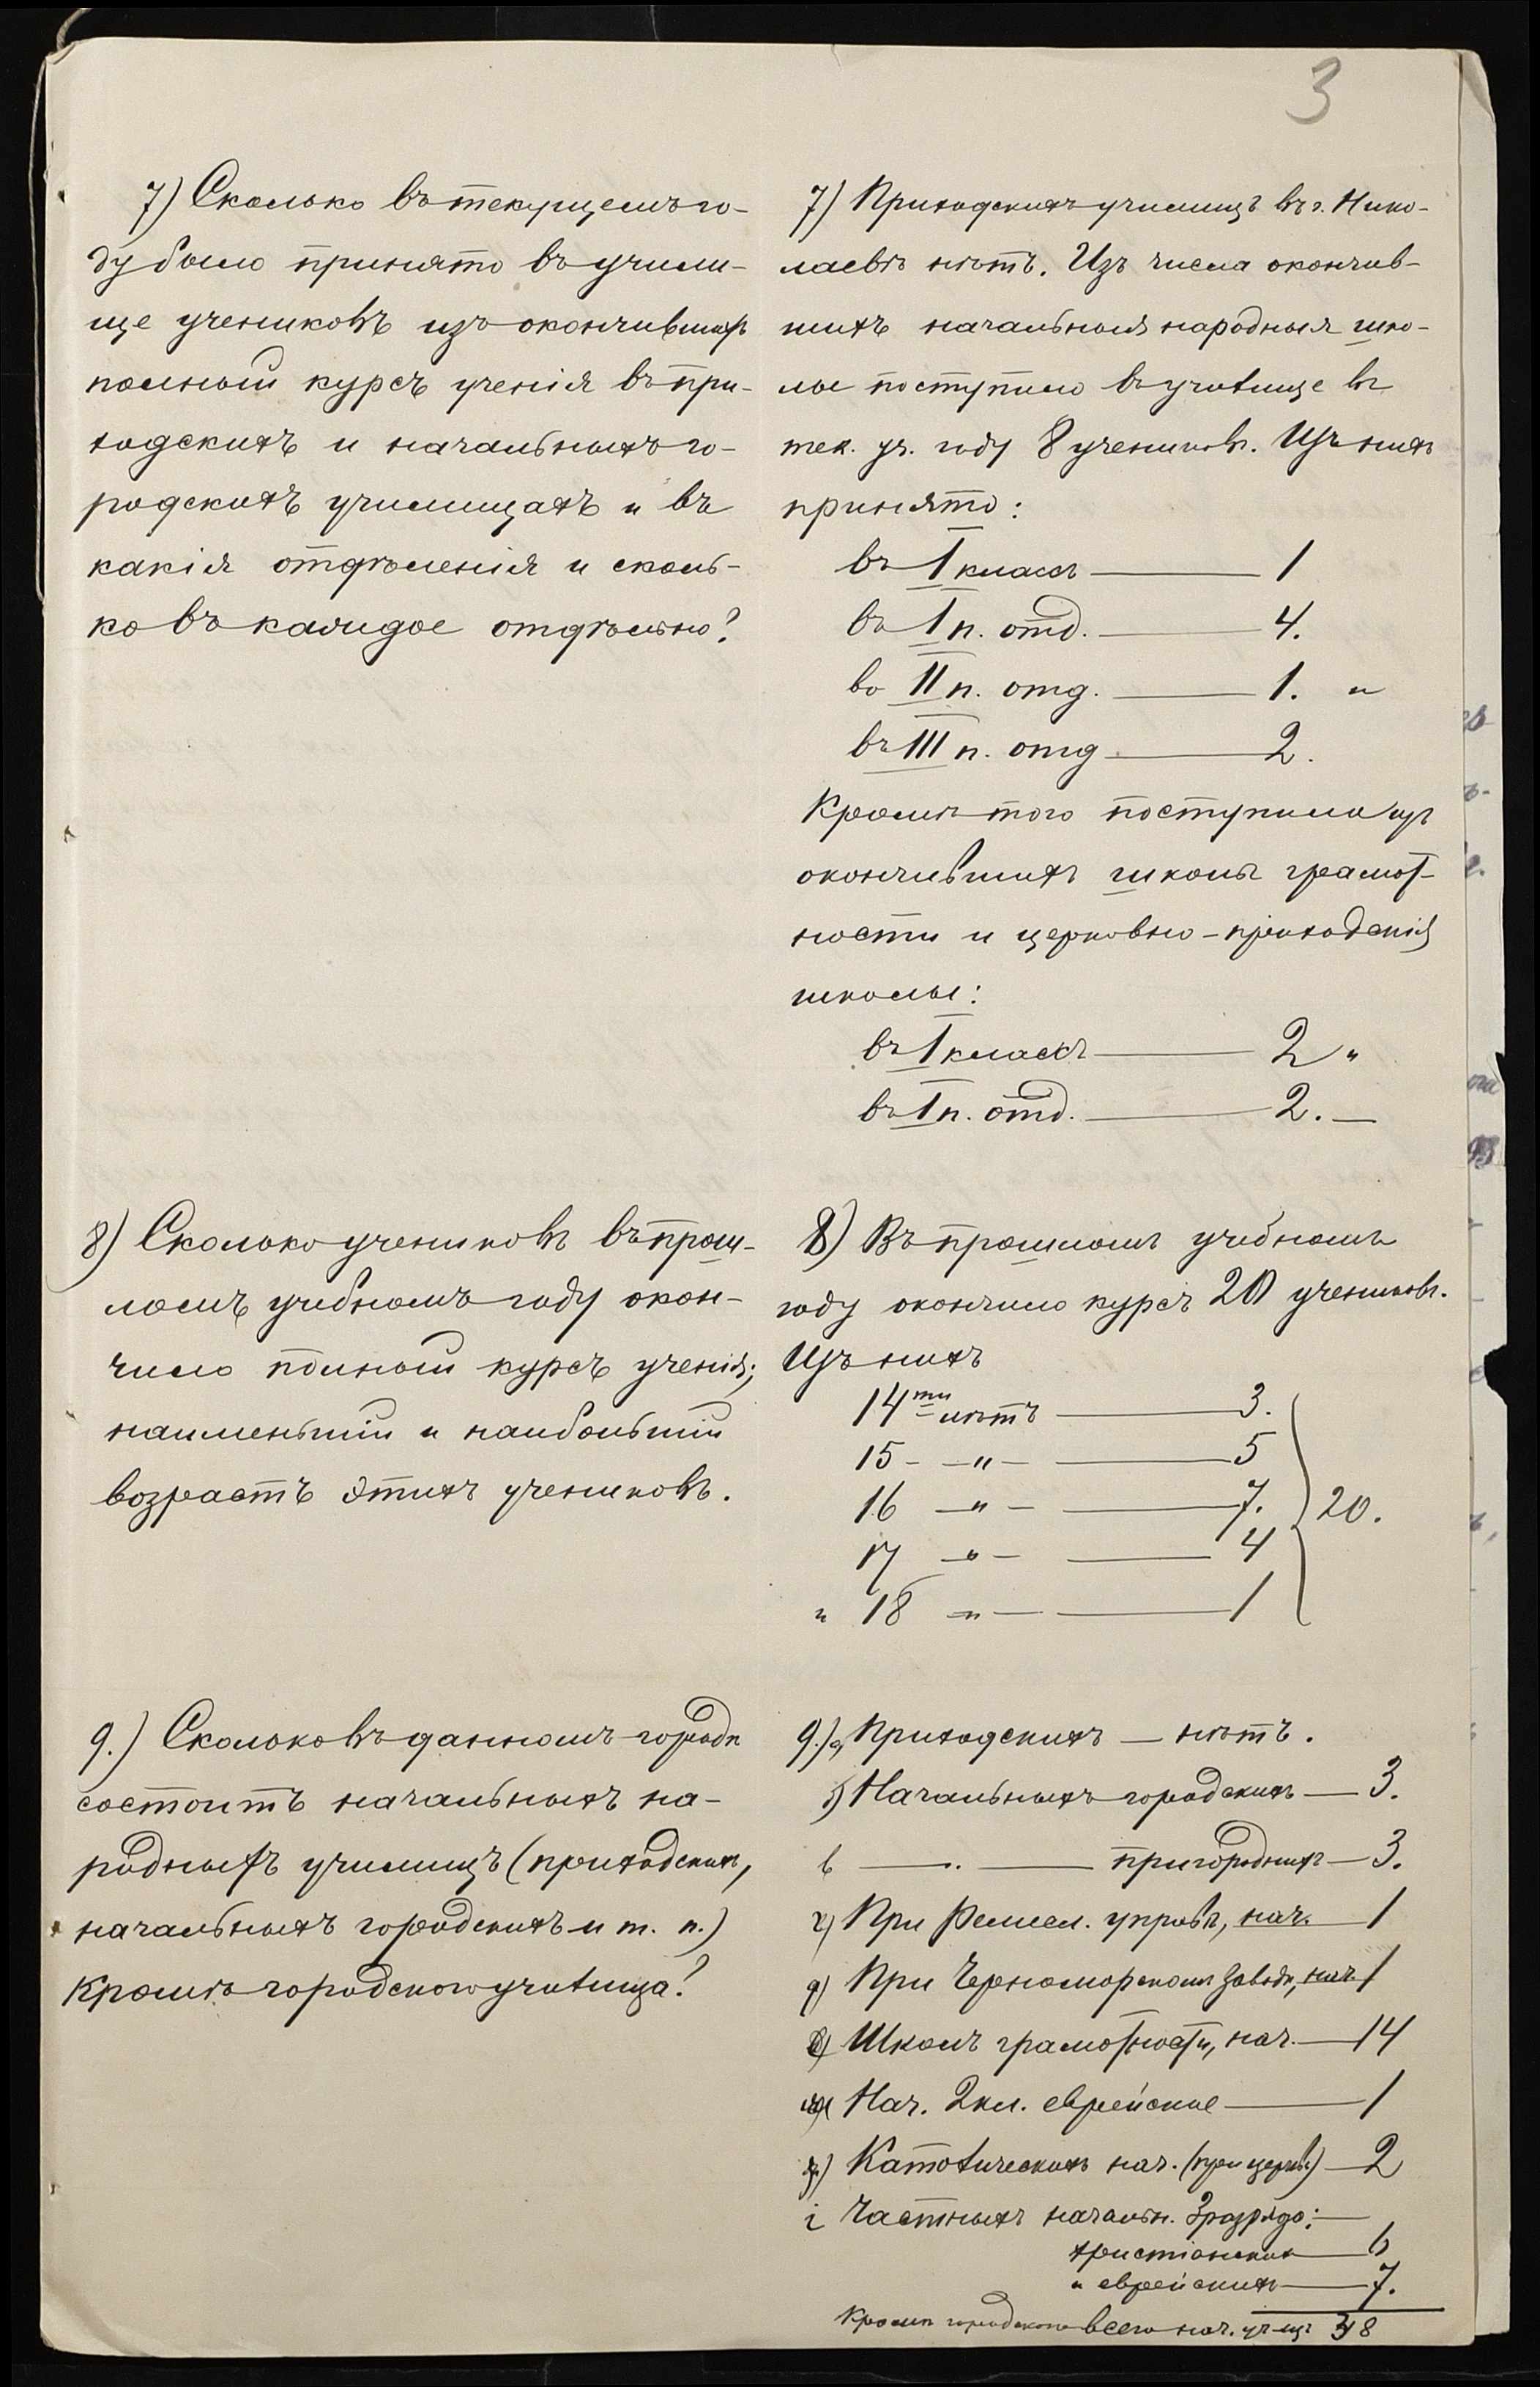 3
7) Сколько въ текущемъ го-
ду было принято въ учили-
ще учениковъ изъ окончившихъ
полный курсъ ученія въ при-
ходскихъ и начальныхъ го-
родскихъ училищахъ и въ
какія отдѣленія и сколь-
ко въ каждое отдѣльно?
7) Приходскихъ училищъ въ г. Нико-
лаевѣ нѣтъ. Изъ числа окончив-
шихъ начальныя народныя шко-
лы поступило въ училище въ
тек. уч. году 8 учениковъ. Изъ нихъ
принято:
въ I классъ — 1
въ I п. отд. — 4.
во II п. отд. — 1. и
въ III п. отд — 2.
Кромѣ того поступило изъ
окончившихъ школы грамот-
ности и церковно-приходскія
школы:
въ I классъ — 2 "
въ I п. отд. — 2. —
8) Сколько учениковъ въ прош-
ломъ учебномъ году окон-
чило полный курсъ ученія;
наименьшій и наибольшій
возрастъ этихъ учениковъ.
8) Въ прошломъ учебномъ
году окончило курсъ 20 учениковъ.
Изъ нихъ
14ти лѣтъ — 3.
15 - — " — — 5
16 — " — — 7. 20.
17 — " — — 4
и 18 — " — — 1
9.) Сколько въ данномъ городѣ
состоитъ начальныхъ на-
родныхъ училищъ (приходскихъ,
начальныхъ городскихъ и т. п.)
кромѣ городского училища?
9.) а) Приходскихъ — нѣтъ.
б) Начальныхъ городскихъ — 3.
в — " — пригородныхъ — 3.
г) При Ремесл. управѣ, нач. — 1
д) При Черноморскомъ заводѣ, нач. 1
е) Школъ грамотности, нач. — 14
ж) Нач. 2 кл. еврейское — 1
з) Католическихъ нач. (при церкв.) — 2
і Частныхъ начальн. 3 разряда: —
христіанскихъ — 6
и еврейскихъ — 7.
Кромѣ городского всего нач. уч-щъ 38